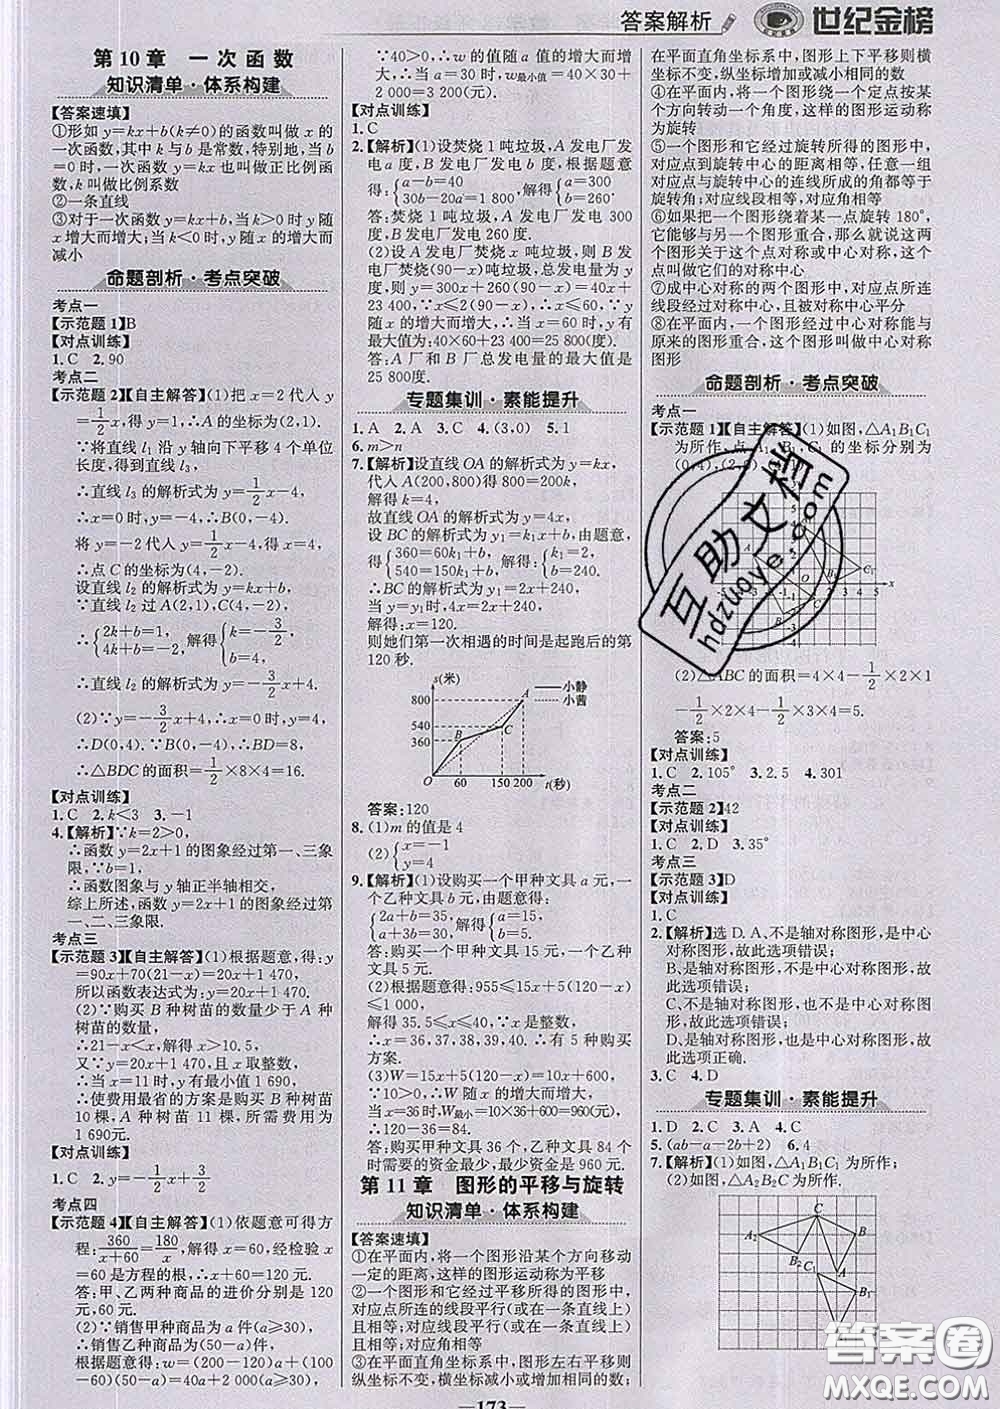 答案解析
世纪金榜
第10章 一次函数
知识清单·体系构建
【答案速填】
①形如 y=kx+b(k≠0)的函数叫做 x 的
一次函数,其中 k 与 b 是常数,特别地,当 b
=0时,一次函数 y=kx 也叫做正比例函
数,k 叫做比例系数
②一条直线
③对于一次函数 y=kx+b,当 k>0 时 y随
x 增大而增大;当 k<0 时,y 随 x 增大而
减小
命题剖析·考点突破
考点一
【示范题1】B
【对点训练】
1.C 2.90
考点二
【示范题2】【自主解答】(1)把 x=2 代入 y
=1/2x,得 y=1,∴A 的坐标为(2,1).
∵将直线 l₁ 沿 y 轴向下平移 4 个单位
长度,得到直线 l₃,
∴直线 l₃ 的解析式为 y=1/2x-4,
∴x=0时,y=-4,∴B(0,-4).
将 y=-2代入 y=1/2x-4,得 x=4,
∴点 C 的坐标为(4,-2).
设直线 l₂ 的解析式为 y=kx+b,
∵直线 l₂ 过 A(2,1),C(4,-2),
∴{2k+b=1, 4k+b=-2, 解得{k=-3/2, b=4,
∴直线 l₂ 的解析式为 y=-3/2x+4.
(2)∵y=-3/2x+4,∴x=0时,y=4,
∴D(0,4).∵B(0,-4),∴BD=8,
∴△BDC的面积=1/2×8×4=16.
【对点训练】
1.C 2.k<3 3.-1
4.【解析】∵k=2>0,
∴函数 y=2x+1 的图象经过第一、三象
限,∵b=1>0,
∴函数图象与 y轴正半轴相交,
综上所述,函数 y=2x+1 的图象经过第
一、二、三象限.
考点三
【示范题3】【自主解答】(1)根据题意,得:y
=90x+70(21-x)=20x+1 470,
所以函数表达式为:y=20x+1 470.
(2)∵购买 B 种树苗的数量少于 A 种
树苗的数量,
∴21-x<x,解得 x>10.5,
又∵y=20x+1 470,且 x取整数,
∴当 x=11时,y有最小值1 690,
∴使费用最省的方案是购买 B 种树苗
10 棵,A 种树苗 11 棵,所需费用为
1 690元.
【对点训练】
1.C 2.y=-1/2x+3/2
考点四
【示范题4】【自主解答】(1)依题意可得方
程:360/(x+60)=180/x,解得 x=60,经检验 x
=60是方程的根,∴x+60=120元.
答:甲、乙两种商品的进价分别是 120
元,60元.
(2)∵销售甲种商品为 a件(a≥30),
∴销售乙种商品为(50-a)件.
根据题意得:w=(200-120)a+(100-
60)(50-a)=40a+2 000(a≥30),
∵40>0,∴w 的值随 a 值的增大而增
大,∴当 a=30 时,w最小值=40×30+
2 000=3 200(元).
【对点训练】
1.C
2.【解析】(1)设焚烧1吨垃圾,A 发电厂发
电 a 度,B 发电厂发电 b 度,根据题意
得:{a-b=40, 30b-20a=1 800, 解得{a=300, b=260.
答:焚烧 1 吨垃圾,A 发电厂发电 300
度,B 发电厂发电 260 度.
(2)设 A 发电厂焚烧 x 吨垃圾,则 B 发
电厂焚烧(90-x)吨垃圾,总发电量为 y
度,则 y=300x+260(90-x)=40x+
23 400,∵x≤2(90-x),∴x≤60,∵y
随 x 的增大而增大,∴当 x=60 时,y有
最大值为:40×60+23 400=25 800(度).
答:A 厂和 B 厂总发电量的最大值是
25 800度.
专题集训·素能提升
1.A 2.A 3.C 4.(3,0) 5.1
6.m>n
7.【解析】设直线OA的解析式为y=kx,
代入A(200,800)得800=200k,
解得k=4,
故直线OA的解析式为y=4x,
设BC的解析式为y₁=k₁x+b,由题意,
得{360=60k₁+b, 540=150k₁+b, 解得:{k₁=2, b=240.
∴BC的解析式为y₁=2x+240,
当y=y₁时,4x=2x+240,
解得:x=120.
则她们第一次相遇的时间是起跑后的第
120秒.
s(米)
小静
小茜
800
540
360
A
B
C
O 60 150 200 t(秒)
答案:120
8.(1)m的值是4
(2){x=-1, y=4
9.【解析】(1)设购买一个甲种文具 a元,一
个乙种文具 b元,由题意得:
{2a+b=35, a+3b=30, 解得{a=15, b=5,
答:购买一个甲种文具 15 元,一个乙种
文具5元.
(2)根据题意得:955≤15x+5(120-x)
≤1 000,
解得35.5≤x≤40,∵x是整数,
∴x=36,37,38,39,40.∴有 5 种购买
方案.
(3)W=15x+5(120-x)=10x+600,
∵10>0,∴W 随 x 的增大而增大,
当x=36时,W最小=10×36+600=960(元),
∴120-36=84.
答:购买甲种文具 36 个,乙种文具 84 个
时需要的资金最少,最少资金是 960 元.
第11章 图形的平移与旋转
知识清单·体系构建
【答案速填】
①在平面内,将一个图形沿某个方向移动
一定的距离,这样的图形运动称为平移
②一个图形和它经过平移所得的图形中,
对应点所连的线段平行(或在一条直线上)
且相等;对应线段平行(或在一条直线上)
且相等;对应角相等
③在平面直角坐标系中,图形左右平移则
纵坐标不变,横坐标减小或增加相同的数;
在平面直角坐标系中,图形上下平移则横
坐标不变,纵坐标增加或减小相同的数
④在平面内,将一个图形绕一个定点按某
个方向转动一个角度,这样的图形运动称
为旋转
⑤一个图形和它经过旋转所得的图形中,
对应点到旋转中心的距离相等,任意一组
对应点与旋转中心的连线所成的角都等于
旋转角;对应线段相等,对应角相等
⑥如果把一个图形绕着某一点旋转 180°,
它能够与另一个图形重合,那么就说这两
个图形关于这个点对称或中心对称,这个
点叫做它们的对称中心
⑦成中心对称的两个图形中,对应点所连
线段经过对称中心,且被对称中心平分
⑧在平面内,一个图形经过中心对称能与
原来的图形重合,这个图形叫做中心对称
图形
命题剖析·考点突破
考点一
【示范题1】【自主解答】(1)如图,△A₁B₁C₁
为所作,点 A₁,B₁,C₁ 的坐标分别为
(2)△ABC 的面积=4×4-1/2×2×1
-1/2×2×4-1/2×3×4=5.
答案:5
【对点训练】
1.C 2.105° 3.2.5 4.301
考点二
【示范题2】42
【对点训练】
1.C 2.D 3.35°
考点三
【示范题3】D
【对点训练】
1.C
2.【解析】选 D.A、不是轴对称图形,是中心
对称图形,故此选项错误;
B、是轴对称图形,不是中心对称图形,
故此选项错误;
C、不是轴对称图形,也不是中心对称图
形,故此选项错误;
D、是轴对称图形,也是中心对称图形,
故此选项正确.
3.C 4.D
专题集训·素能提升
1.D 2.C 3.A 4.C
5.(ab-a-2b+2) 6.4
7.【解析】(1)如图,△A₁B₁C₁为所作;
(2)如图,△A₂B₂C为所作;
C
A₂
B
B₂
C₁
A
B₁
—173—
互助文档
hdzuoye.com
答案圈
MXQE.COM